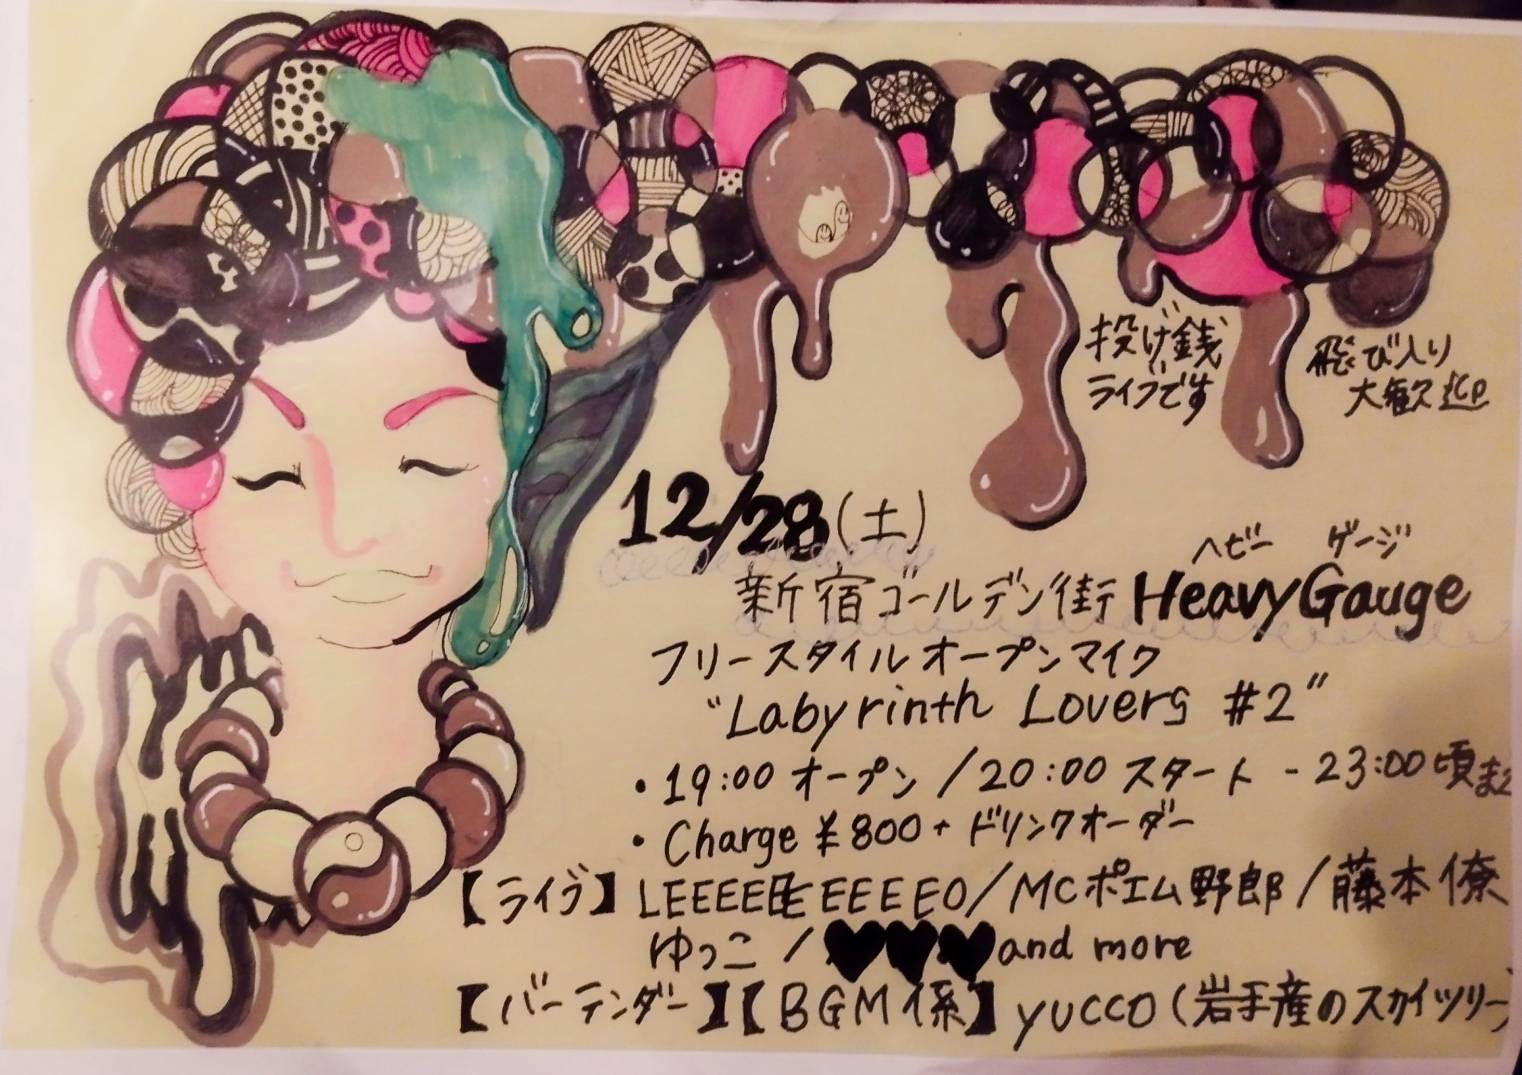 投げ銭
ライブです
飛び入り
大歓迎
12/28(土)
ヘビー ゲージ
新宿ゴールデン街 HeavyGauge
フリースタイルオープンマイク
"Labyrinth Lovers #2"
・19:00 オープン / 20:00 スタート - 23:00頃まで
・Charge ¥800+ドリンクオーダー
【ライヴ】 LEEEEEEEEEEO/MCポエム野郎/藤本僚
ゆっこ / ♥♥♥and more
【バーテンダー】【BGM係】 YUCCO (岩手産のスカイツリー)